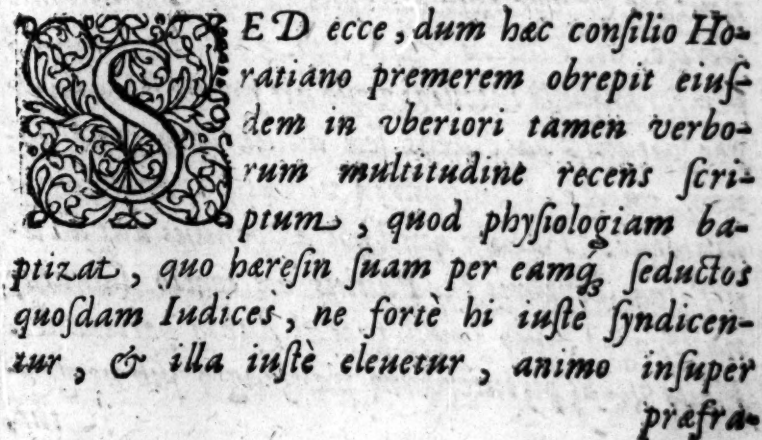 SED ecce, dum hæc conſilio Ho-
ratiano premerem obrepit eiuſ-
dem in vberiori tamen verbo-
rum multitudine recens ſcri-
ptum, quod phyſiologiam ba-
ptizat, quo hæreſin ſuam per eamq́ꝫ ſeductos
quoſdam Iudices, ne fortè hi iuſtè ſyndicen-
tur, & illa iuſtè eleuetur, animo inſuper
præfra-